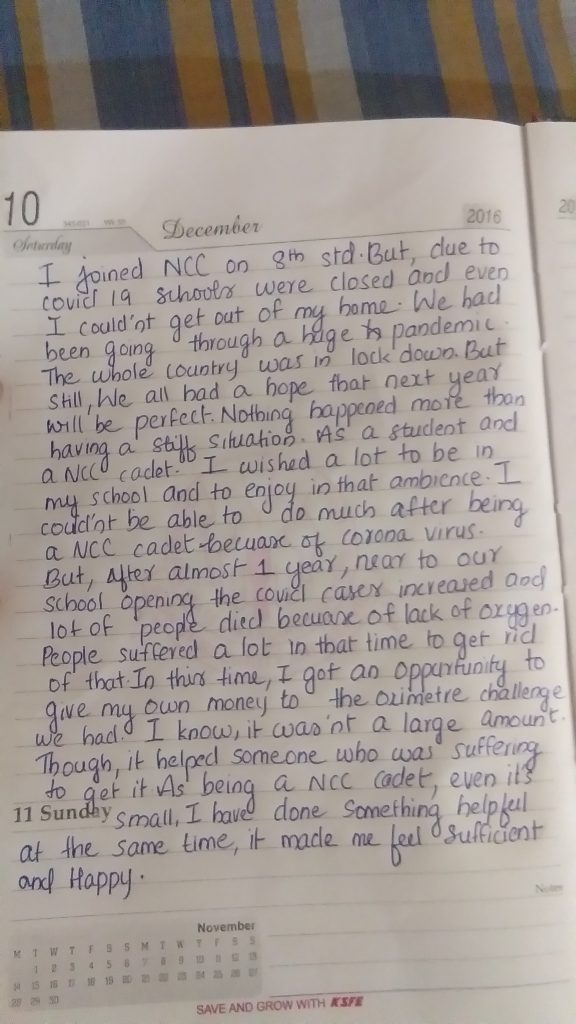 10
Saturday
December
2016
20
I joined NCC on 8th std. But, due to
covid 19 schools were closed and even
I could'nt get out of my home. We had
been going through a huge pandemic.
The whole country was in lock down. But
still, We all had a hope that next year
will be perfect. Nothing happened more than
having a stiff situation. As a student and
a NCC cadet. I wished a lot to be in
my school and to enjoy in that ambience. I
could'nt be able to do much after being
a NCC cadet becuase of corona virus.
But, After almost 1 year, near to our
school opening the covid cases increased and
lot of people died becuase of lack of oxygen.
People suffered a lot in that time to get rid
of that. In this time, I got an oppurtunity to
give my own money to the oximetre challenge
we had. I know, it was'nt a large amount.
Though, it helped someone who was suffering
to get it. As being a NCC cadet, even it's
11 Sunday
small, I have done something helpful
at the same time, it made me feel sufficient
and Happy.
Notes
November
M T W T F S S M T W T F S S
1 2 3 4 5 6 7 8 9 10 11 12 13
14 15 16 17 18 19 20 21 22 23 24 25 26 27
28 29 30
SAVE AND GROW WITH KSFE